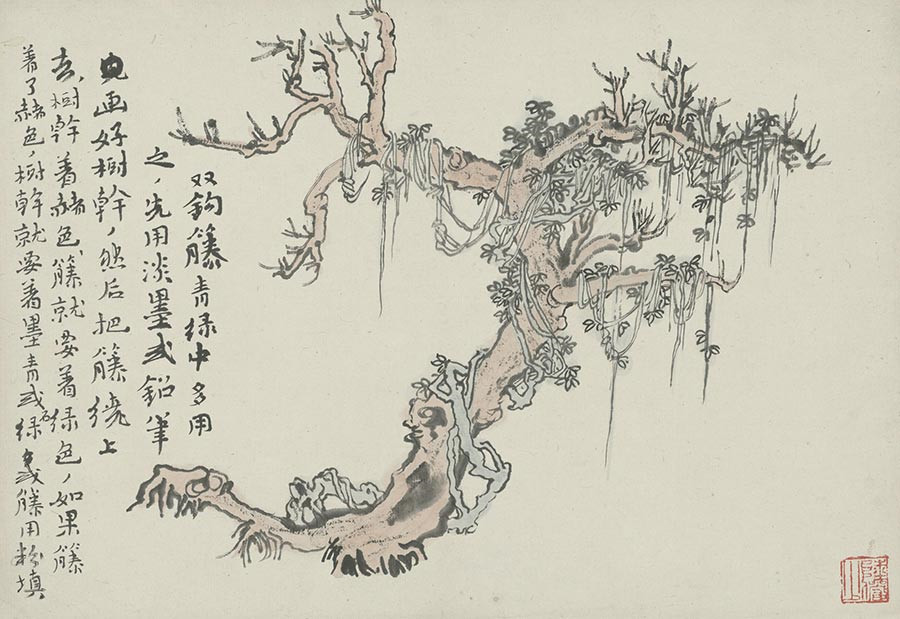 双鈎籐青绿中多用
之,先用淡墨或鉛筆
勾画好樹幹,然后把籐绕上
去,樹幹着赭色,籐就要着绿色,如果籐
着了赭色,樹幹就要着墨青或石绿或籐用粉填